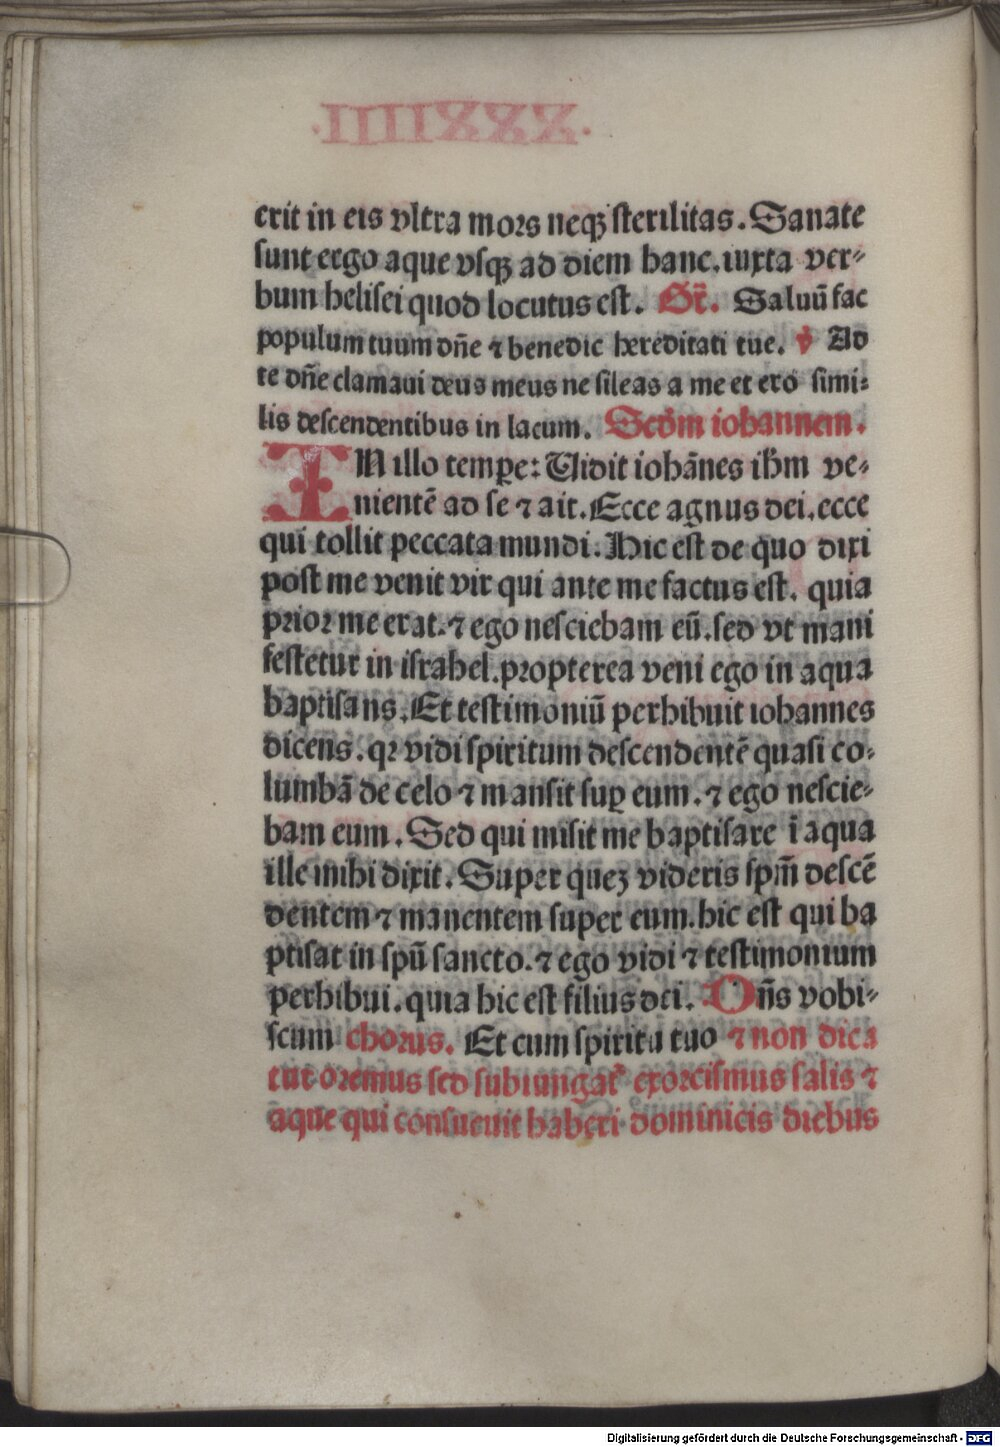 erit in eis vltra mors neqꝫ sterilitas. Sanate
sunt ergo aque vsqꝫ ad diem hanc. iuxta ver-
bum helisei quod locutus est. Gr̄. Saluū fac
populum tuum dn̄e ⁊ benedic hereditati tue. v̄ Ad
te dn̄e clamaui deus meus ne sileas a me et ero simi-
lis descendentibus in lacum. Scd̄m iohannem.
IN illo tempꝑe: Vidit iohānes ih̄m ve-
nientē ad se ⁊ ait. Ecce agnus dei. ecce
qui tollit peccata mundi. Hic est de quo dixi
post me venit vir qui ante me factus est. quia
prior me erat. ⁊ ego nesciebam eū. sed vt mani
festetur in israhel. propterea veni ego in aqua
baptisans. Et testimoniū perhibuit iohannes
dicens. qꝛ vidi spiritum descendentē quasi co-
lumbā de celo ⁊ mansit suꝑ eum. ⁊ ego nescie-
bam eum. Sed qui misit me baptisare ī aqua
ille mihi dixit. Super queꝫ videris spm̄ descē
dentem ⁊ manentem super eum. hic est qui ba
ptisat in spū sancto. ⁊ ego vidi ⁊ testimonium
perhibui. quia hic est filius dei. Dn̄s vobi-
scum chorus. Et cum spiritu tuo ⁊ non dica
tur oremus sed subiungat᷑ exorcismus salis ⁊
aque qui consueuit haberi dominicis diebus
Digitalisierung gefördert durch die Deutsche Forschungsgemeinschaft - DFG